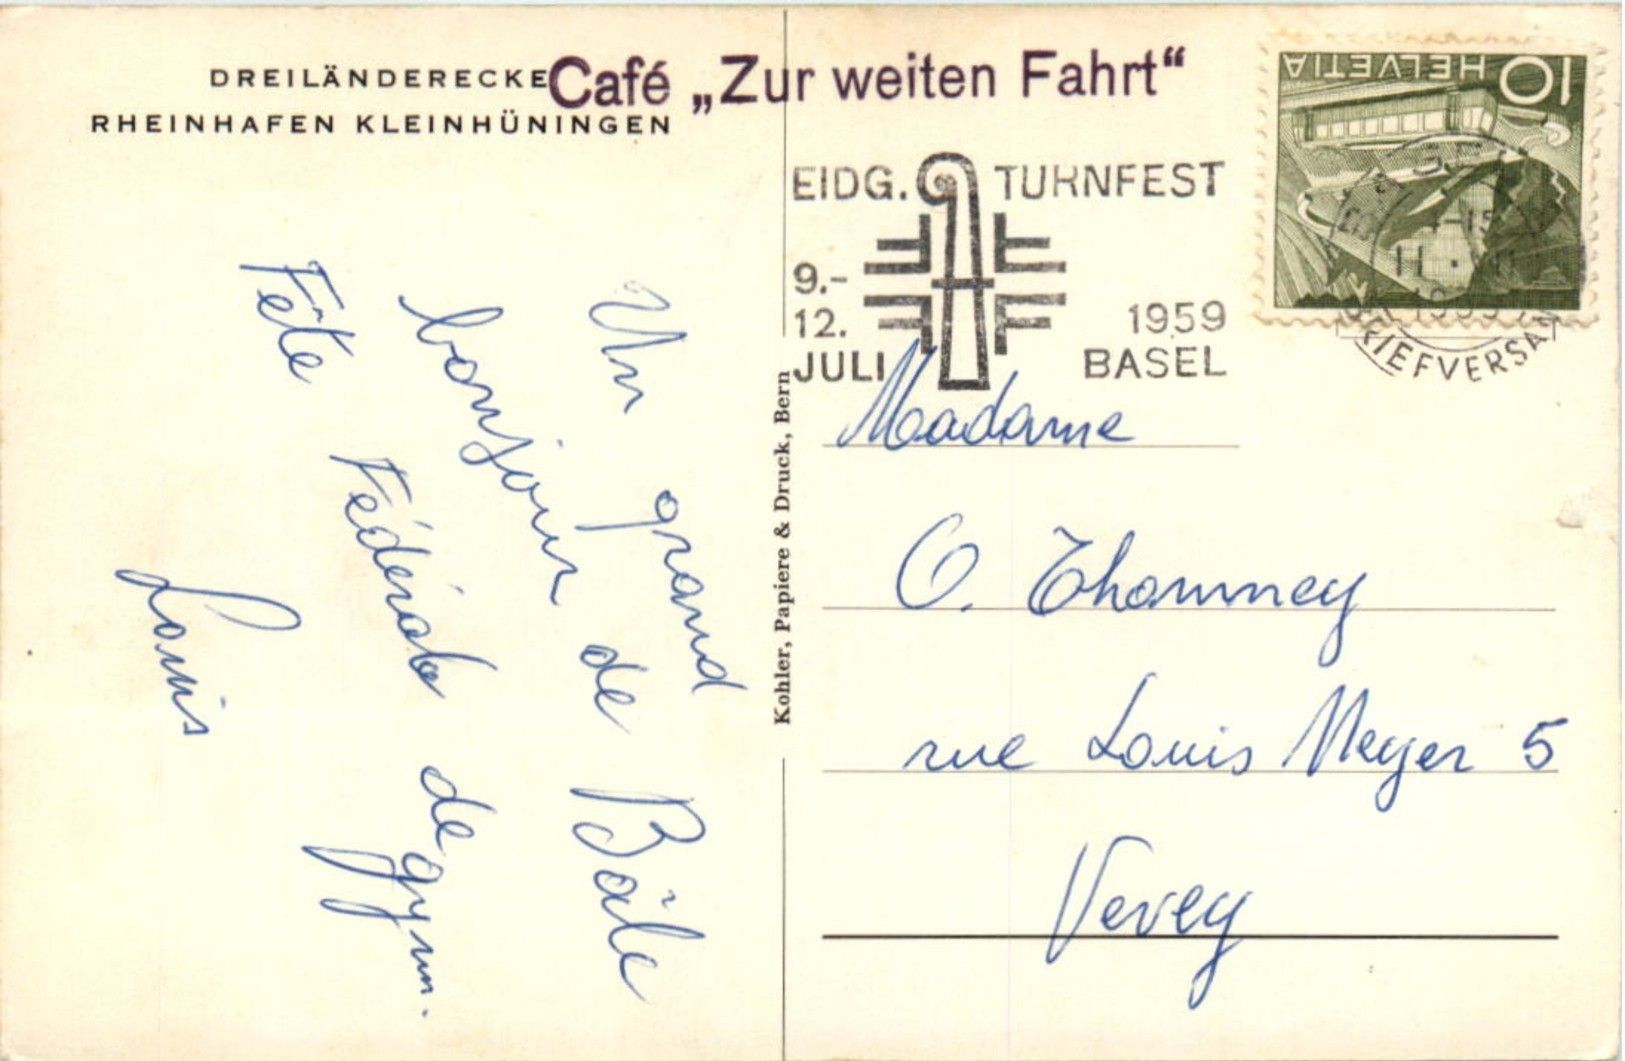 DREILÄNDERECKE
RHEINHAFEN KLEINHÜNINGEN
Café „Zur weiten Fahrt“
EIDG. TURNFEST
9.-
12.
JULI
1959
BASEL
HELVETIA 10
BRIEFVERSAND
Un grand
bonjour de Bâle
Fête Fédérale de gym.
Louis
Kohler, Papiere & Druck, Bern
Madame
O. Thommey
rue Louis Meyer 5
Vevey